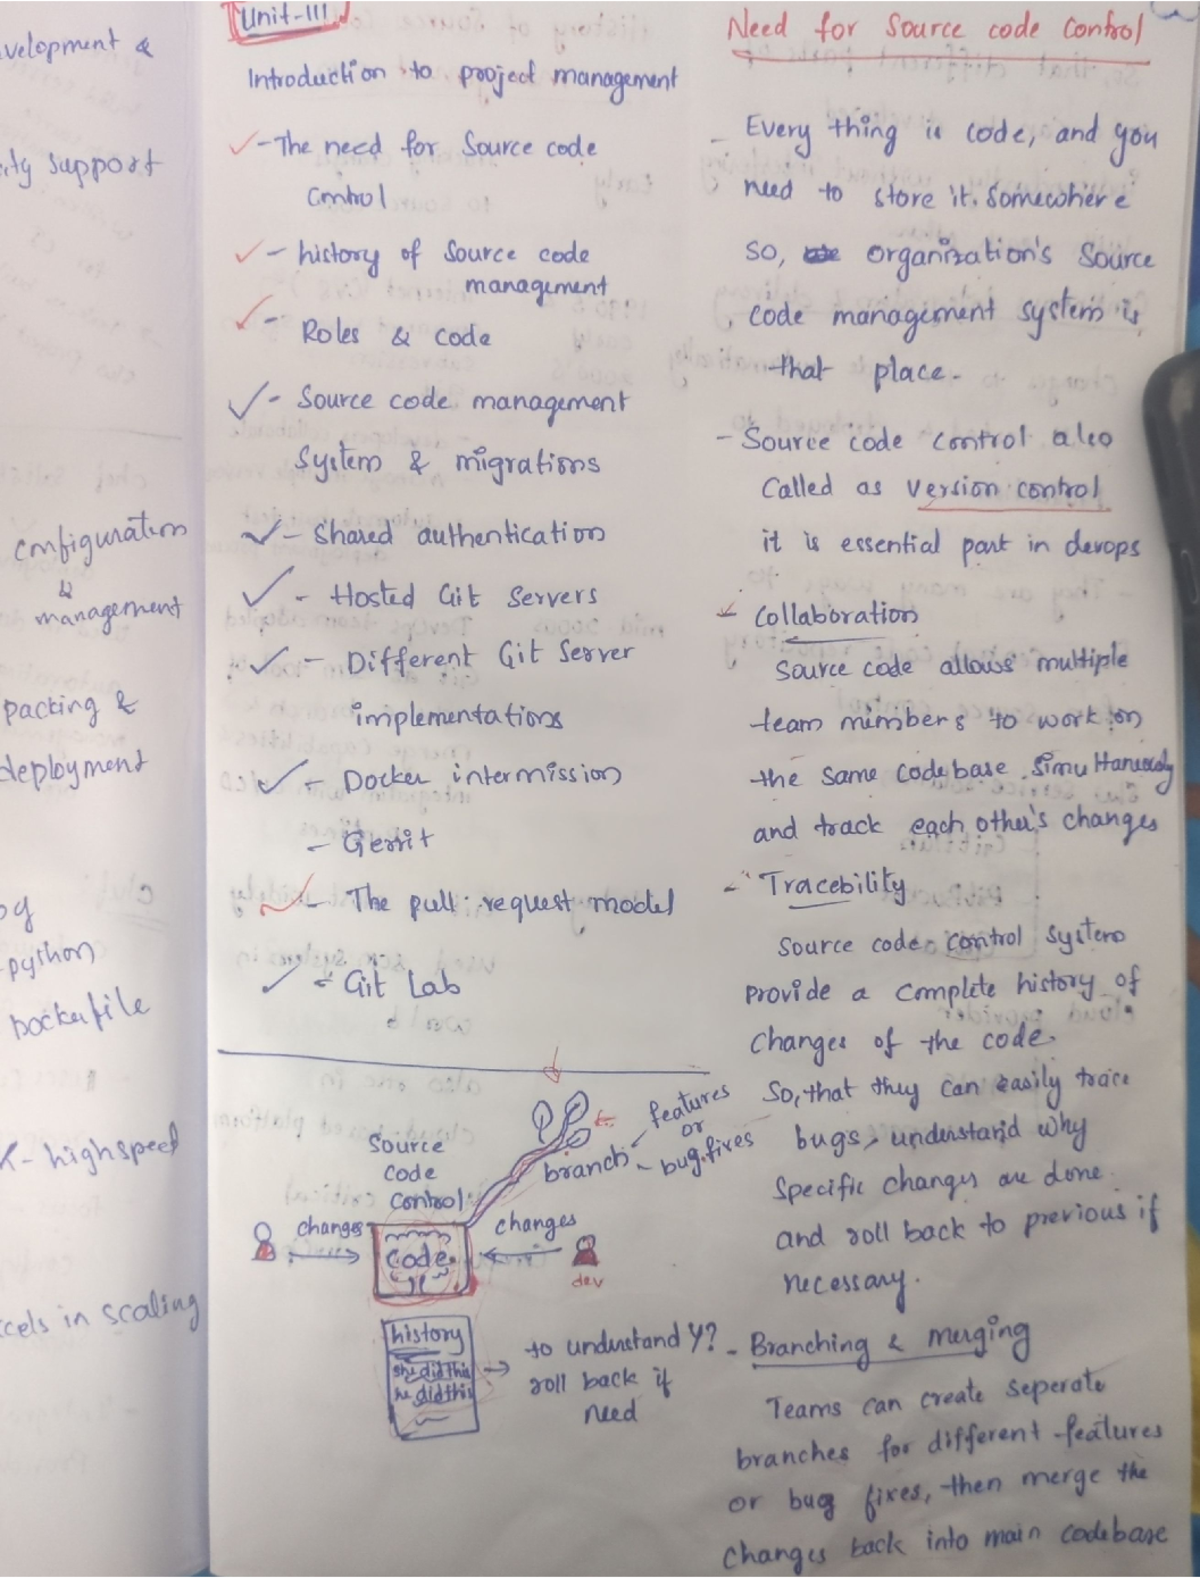 velopment &
ity support
configuration
&
management
packing &
deployment
og
python
Dockerfile
K - highspeed
cels in scaling
Unit-III
Introduction to project management
- The need for Source code
control
- history of Source code
management
- Roles & code
- Source code management
System & migrations
- Shared authentication
- Hosted Git Servers
- Different Git Server
implementations
- Docker intermission
- Gerrit
- The pull request model
- Git Lab
Source
code
control
branch
features
or
bug fixes
changes
code
changes
dev
history
she did this
he did this
to understand Y?
roll back if
need
Need for Source code Control
- Every thing is code, and you
need to store it. Somewhere
so, organization's Source
code management system is
that place.
- Source code control also
called as version control
it is essential part in devops
- Collaboration
Source code allows multiple
team mimbers to work on
the same codebase simultaniously
and track each other's changes
- Tracebility
Source code control system
provide a complete history of
changes of the code.
So, that they can easily trace
bugs, understand why
specific changes are done.
and roll back to previous if
necessary.
- Branching & merging
Teams can create seperate
branches for different features
or bug fixes, then merge the
changes back into main codebase